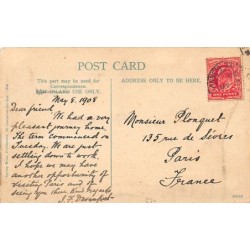 POST CARD
This part may be used for
Correspondence
INLAND USE ONLY.
ADDRESS ONLY TO BE HERE.
May 8. 1908
Dear friend,
We had a very
pleasant journey home.
The term commenced on
Tuesday. We are just
settling down to work.
I hope we may have
another opportunity of
visiting Paris and of
seeing you then. Kind Regards
J. F. Davenport
Monsieur Plonquet
135 rue de Sèvres
Paris
France